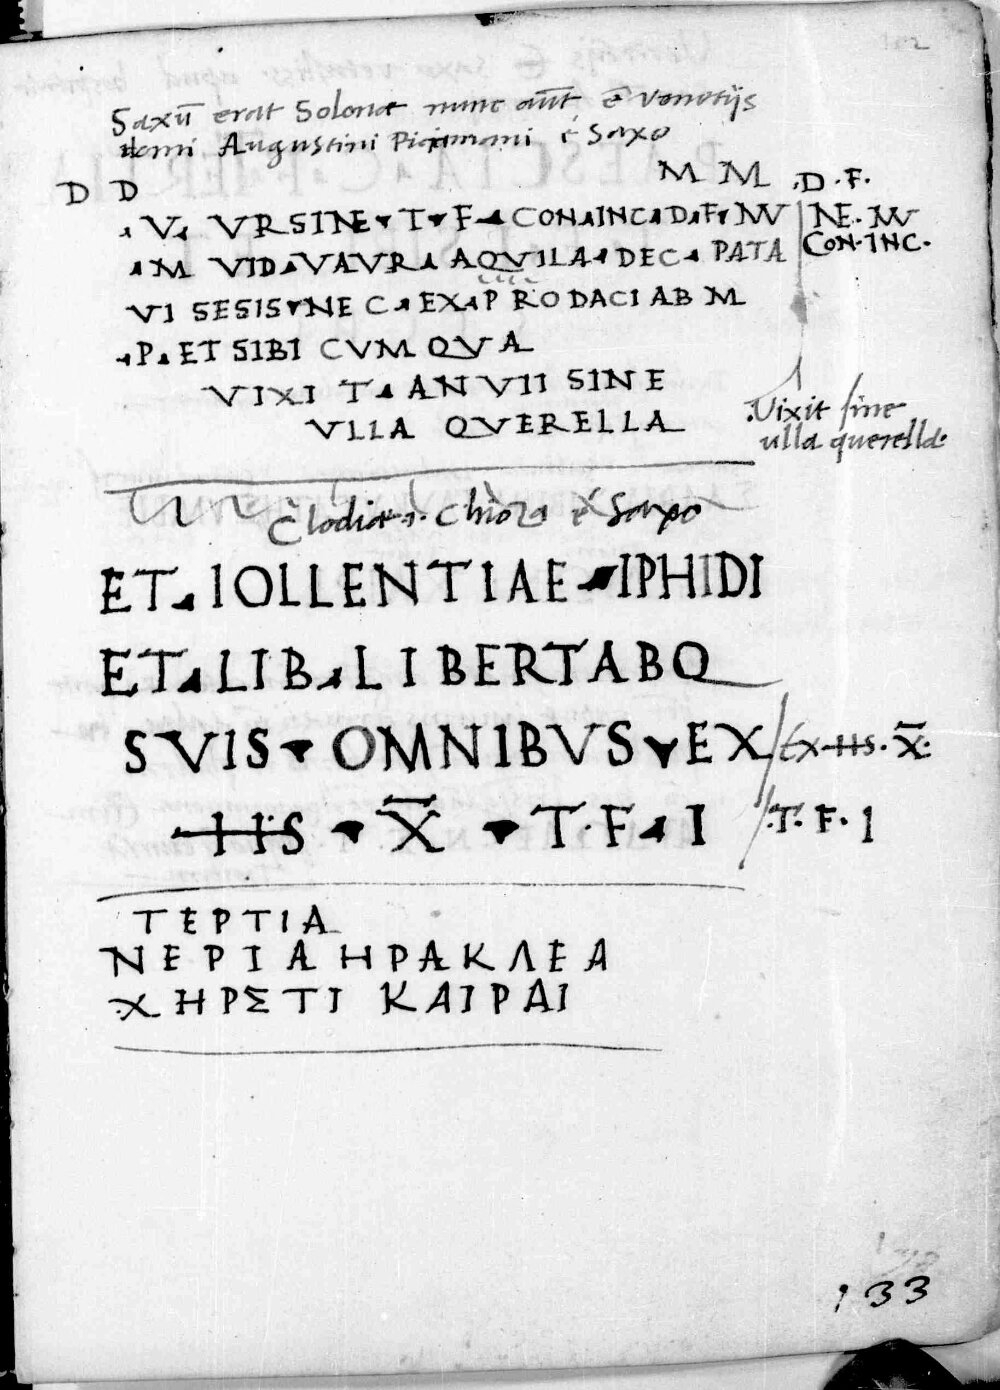 Saxū erat Solonae nunc aūt ē Venetijs
domi Augustini é Saxo
D D M M .D.F.
.V. VRSINE T F CON INC D F NV NE. NV
. M VID VAVR AQVILA DEC PATA CON. INC.
VI SESIS NE C EX PRODACI AB M
.P. ET SIBI CVM QVA
VIXI T AN VII SINE
VLLA QVERELLA
Vixit sine
ulla querella
Clodiae .i. Chioza é Saxo
ET . IOLLENTIAE . IPHIDI
ET . LIB . LIBERTABQ
SVIS OMNIBVS EX Ex HS. X̅.
HS X̅ T.F.I .T. F. I
ΤΕΡΤΙΑ
ΝΕΡΙΑ ΗΡΑΚΛΕΑ
ΧΗΡΣΤΙ ΚΑΙΡΑΙ
133